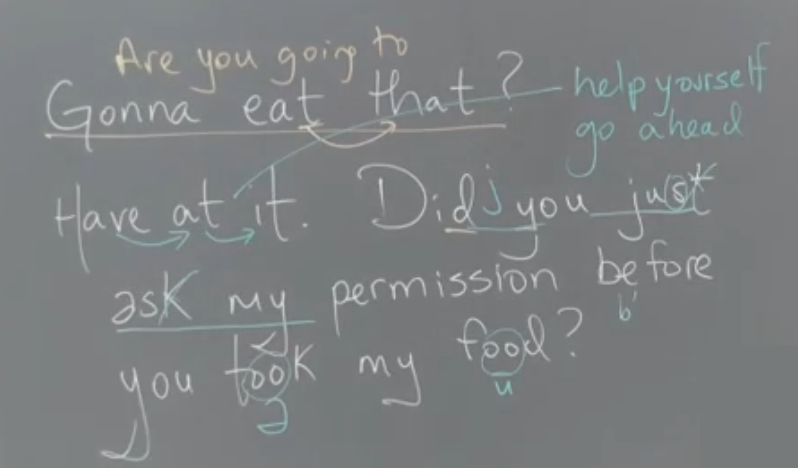 Are you going to
Gonna eat that?
help yourself
go ahead
Have at it. Did j you just
ask my permission before
b'
you took my food?
u